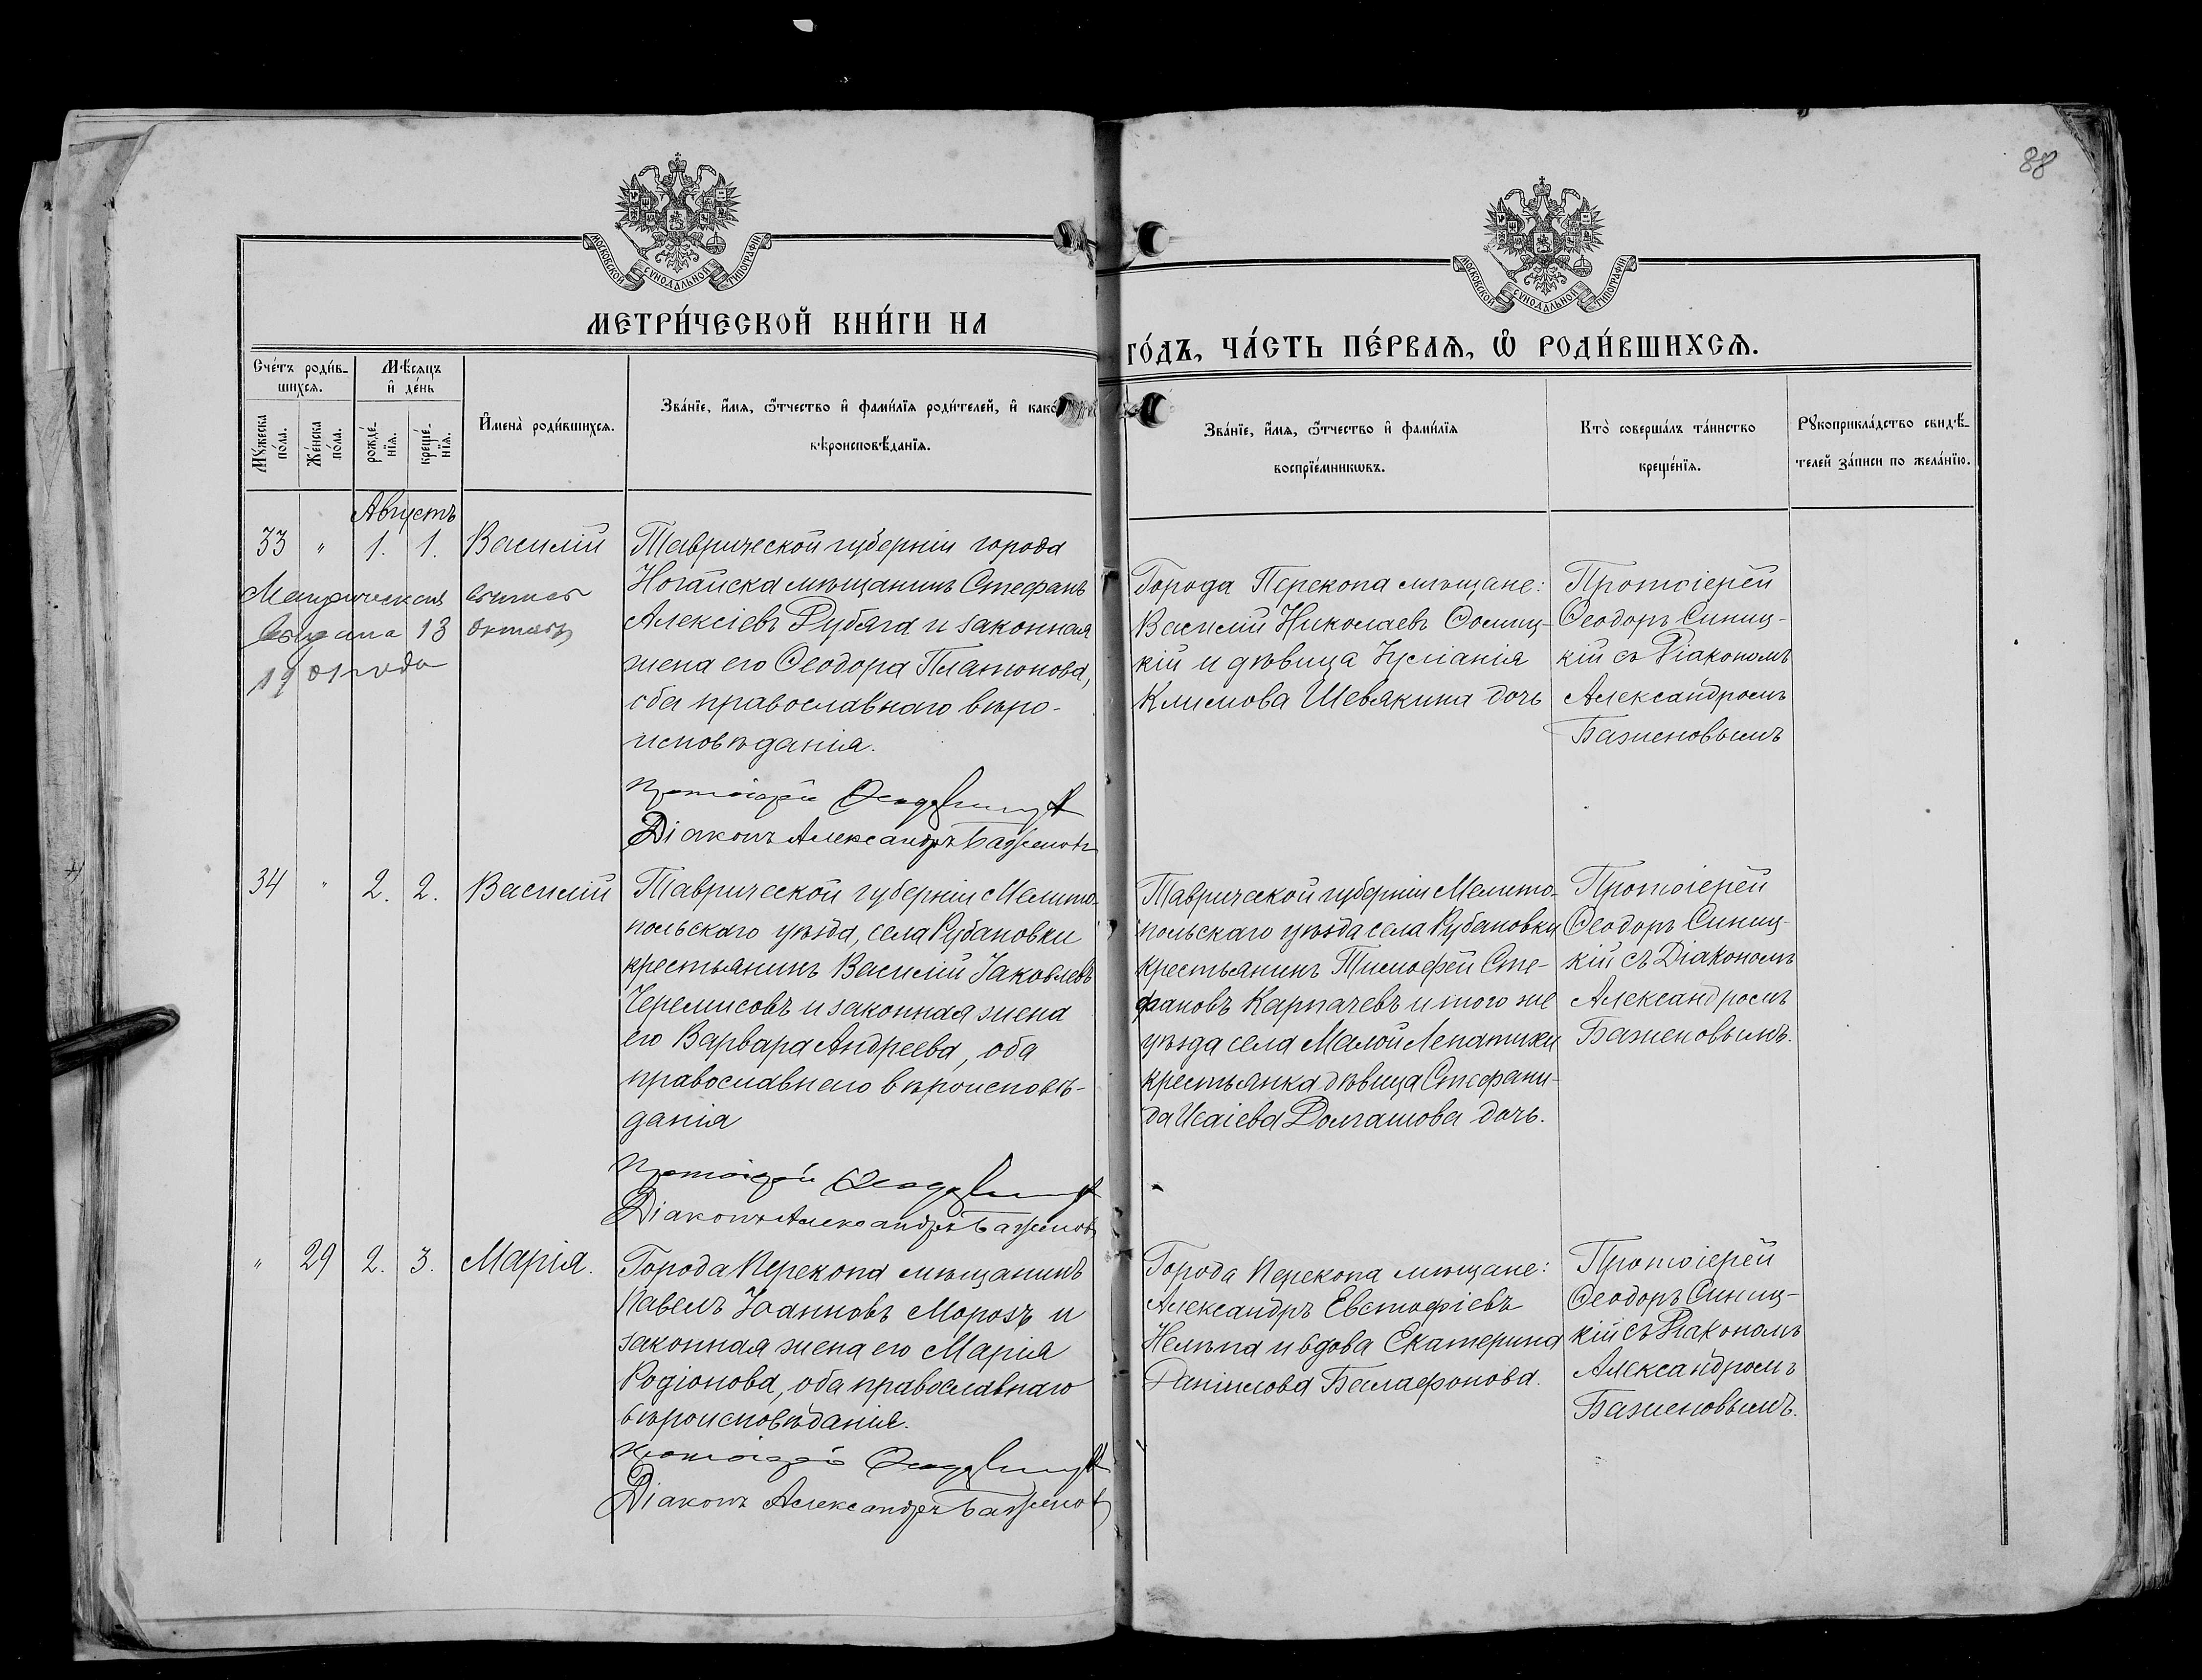 88
МОСКОВСКОЙ СѴНОДАЛЬНОЙ ТИПОГРАФІИ
МОСКОВСКОЙ СѴНОДАЛЬНОЙ ТИПОГРАФІИ
МЕТРИ́ЧЕСКОЙ КНИ́ГИ НА
ГО́ДЪ, ЧА́СТЬ ПЕ́РВАѦ, Ѡ҆ РОДИ́ВШИХСѦ.
Сче́тъ роди́в-
шихсѧ.
Мꙋ́жеска
по́ла.
Же́нска
по́ла.
Мѣ́сѧцъ
и҆ де́нь
рожде́-
нїѧ.
креще́-
нїѧ.
И҆мена̀ роди́вшихсѧ.
Зва́нїе, и҆́мѧ, ѻ҆́тчество и҆ фами́лїѧ роди́телей, и҆ како́
вѣроисповѣ́данїѧ.
Зва́нїе, и҆́мѧ, ѻ҆́тчество и҆ фами́лїѧ
воспрїе́мникѡвъ.
Кто̀ соверша́лъ та́инство
креще́нїѧ.
Рꙋкоприкла́дство свидѣ́-
телей за́писи по жела́нїю.
Августъ
33 " 1. 1. Василій
Метрическая
выдана 13
1901 года
Таврической губерніи города
Ногайска мѣщанинъ Стефанъ
Алексіевъ Рубяга и законная
жена его Ѳеодора Платонова,
оба православнаго вѣро-
исповѣданія.
Протоіерей
Діаконъ Александръ Баженовъ
Города Перекопа мѣщане:
Василій Николаевъ
кій и дѣвица
Климова Шевякина дочь
Протоіерей
Ѳеодоръ Синиц-
кій съ Діакономъ
Александромъ
Баженовымъ
34 " 2. 2. Василій
Таврической губерніи Мелито-
польскаго уѣзда, села Рубановки
крестьянинъ Василій Іаковлевъ
Черемисовъ и законная жена
его Варвара Андреева, оба
православнаго вѣроисповѣ-
данія
Протоіерей
Діаконъ Александръ Баженовъ
Таврической губерніи Мелито-
польскаго уѣзда села Рубановки
крестьянинъ Тимофей Сте-
фановъ Карпачевъ и того же
уѣзда села Малой Лепатихи
крестьянка дѣвица Стефани-
да Исаіева Долгашова дочь.
Протоіерей
Ѳеодоръ Синиц-
кій съ Діакономъ
Александромъ
Баженовымъ.
" 29 2. 3. Марія.
Города Перекопа мѣщанинъ
Павелъ Іоанновъ Морозъ и
законная жена его Марія
Родіонова, оба православнаго
вѣроисповѣданія.
Протоіерей
Діаконъ Александръ Баженовъ
Города Перекопа мѣщане:
Александръ Евстафіевъ
Нелѣпа и вдова Екатерина
Даніилова Беллафонова.
Протоіерей
Ѳеодоръ Синиц-
кій съ Діакономъ
Александромъ
Баженовымъ.